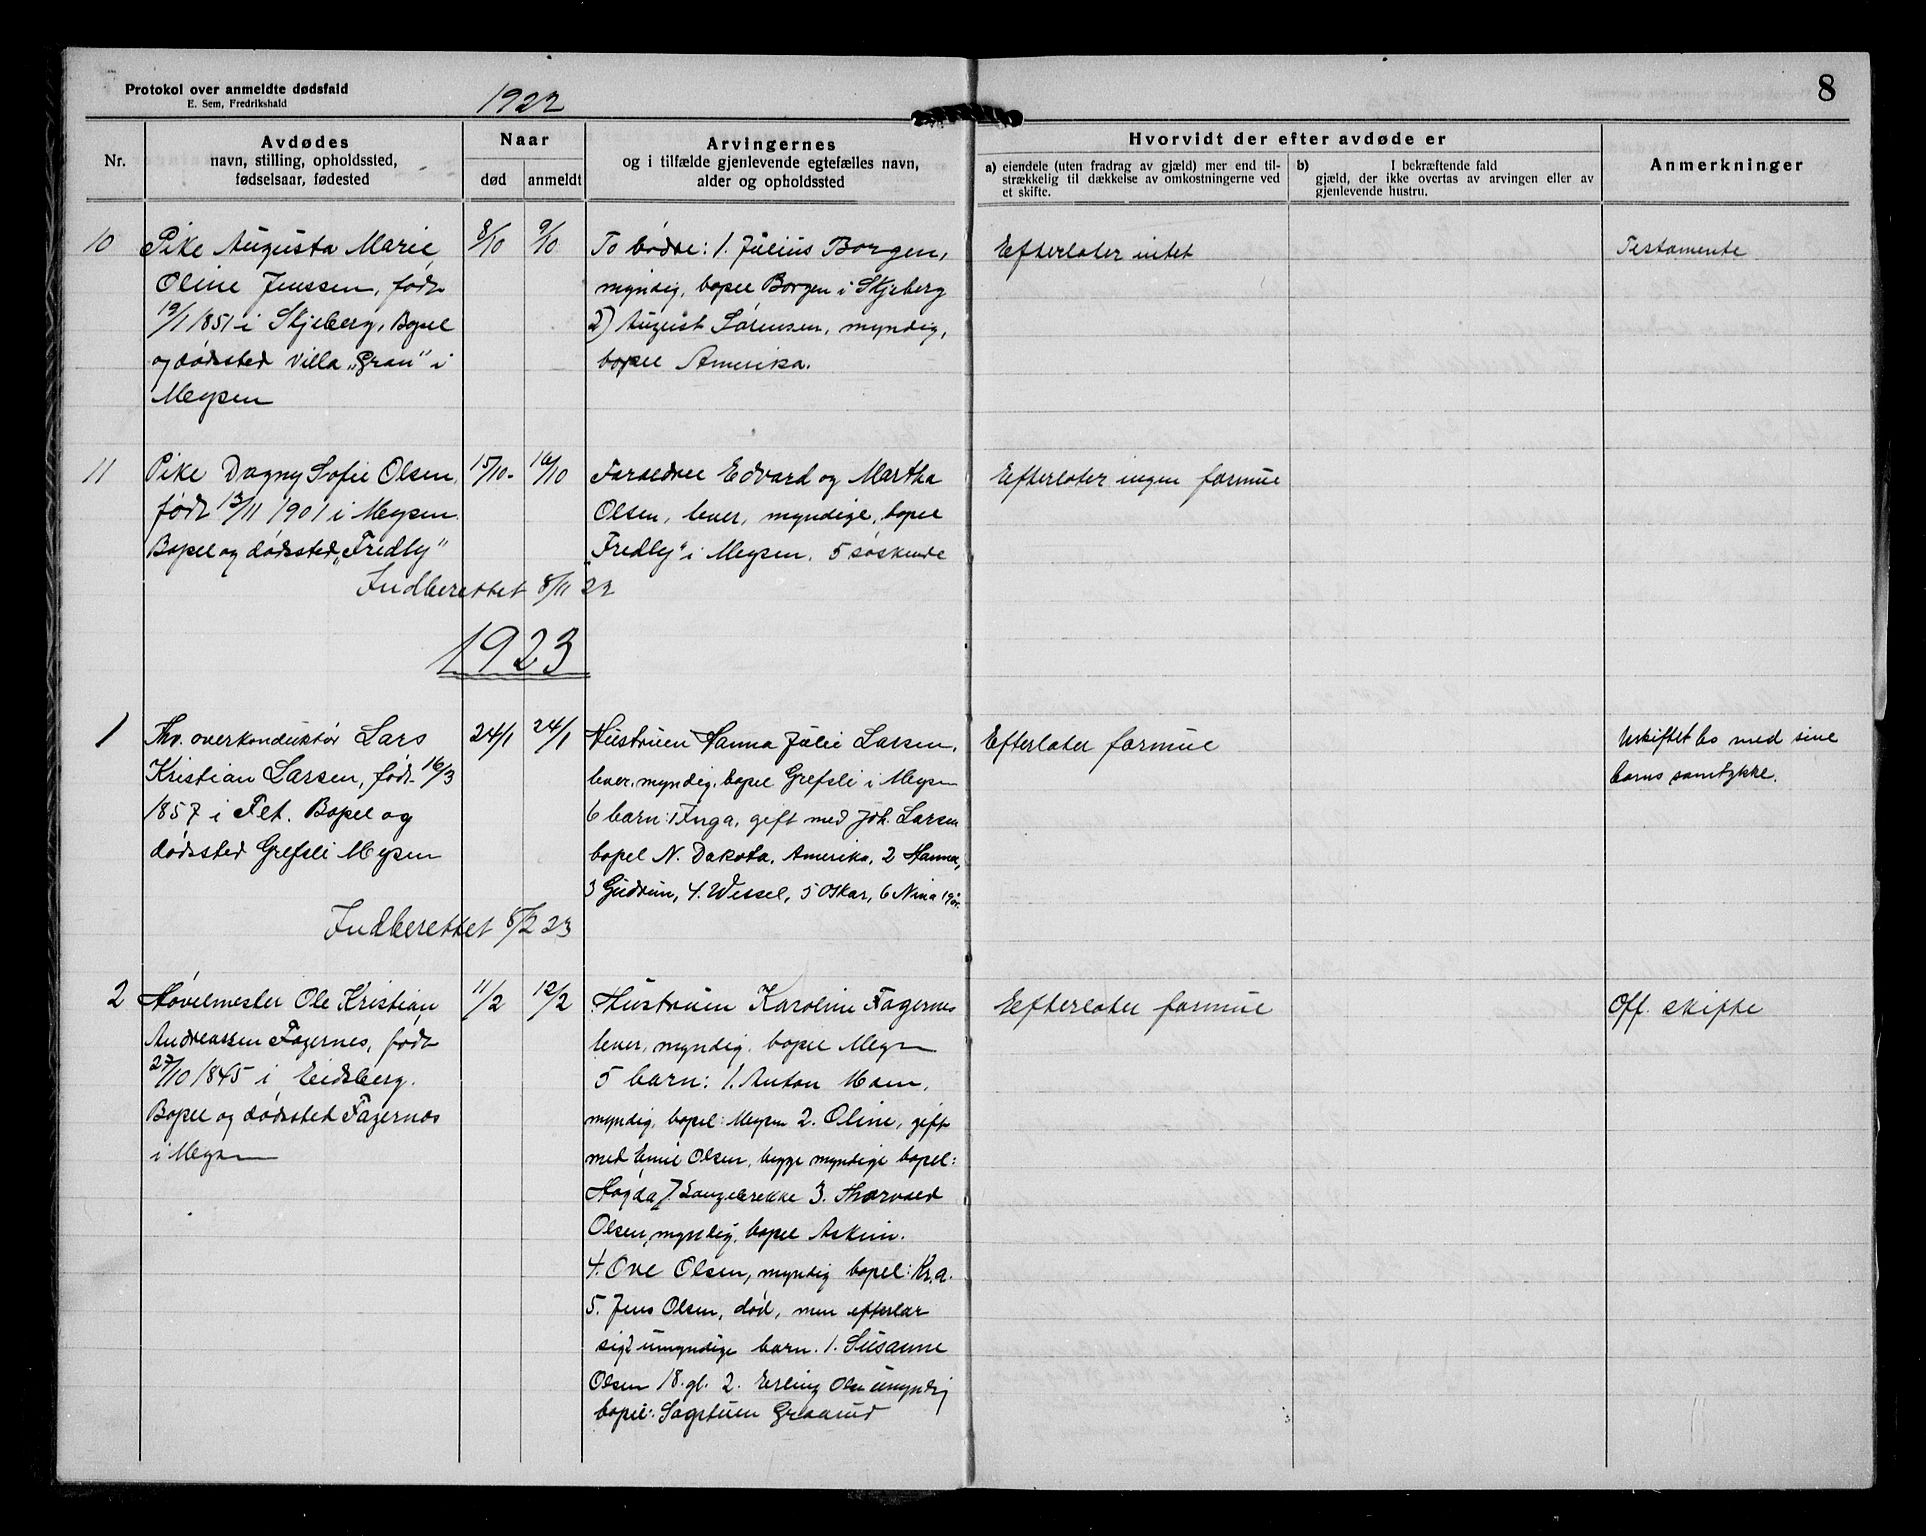 Protokol over anmeldte dødsfald
E. Sem, Fredrikshald
1922
8
Nr.
Avdødes
navn, stilling, opholdssted,
fødselsaar, fødested
Naar
død
anmeldt
Arvingernes
og i tilfælde gjenlevende egtefælles navn,
alder og opholdssted
Hvorvidt der efter avdøde er
a) eiendele (uten fradrag av gjæld) mer end til-
strækkelig til dækkelse av omkostningerne ved
et skifte.
b) I bekræftende fald
gjæld, der ikke overtas av arvingen eller av
gjenlevende hustru.
Anmerkninger
10
Pike Augusta Marie
Oline Jenssen, født
19/1 1851 i Skjeberg, Bopel
og dødssted Villa „Gran" i
Mysen
8/10
9/10
To bødre: 1. Julius Borgen,
myndig, bopel Borgen i Skjeberg
2) August Sørensen, myndig,
bopel Amerika.
Efterlater intet
Testamente
11
Pike Dagny Sofie Olsen,
født 13/11 1901 i Mysen.
Bopel og dødssted „Fredly"
15/10-
16/10
Forældre Edvard og Martha
Olsen, lever, myndige, bopel
Fredly" i Mysen. 5 søskende
Efterlater ingen formue
Indberettet 8/11 22
1923
1
Fhv. overkonduktør Lars
Kristian Larsen, født 16/3
1857 i Fet. Bopel og
dødssted Grefsli Mysen
24/1
24/1
Hustruen Hanna Julie Larsen,
lever, myndig, bopel Grefsli i Mysen
6 barn: 1 Inga, gift med Joh. Larsen
bopel N. Dakota, Amerika, 2 Hanna,
3 Gudrun, 4. Wessel, 5 Oskar, 6 Nina 19 år.
Efterlater formue
Uskiftet bo med sine
barns samtykke.
Indberettet 5/2 23
2
Høvelmester Ole Kristian
Andreassen Fagernes, født
27/10 1845 i Eidsberg.
Bopel og dødssted Fagernes
i Mysen
11/2
12/2
Hustruen Karoline Fagernes
lever, myndig, bopel Mysen
5 barn: 1. Anton Moen,
myndig, bopel: Mysen 2. Oline, gift
med Emil Olsen, begge myndige bopel:
Høgda, Langebrekke 3. Thorvald
Olsen, myndig, bopel Askim.
4. Ove Olsen, myndig bopel: Kr.a.
5. Jens Olsen, død, men efterlar
sig 2 umyndige barn. 1. Susanne
Olsen 18. gl. 2. Erling Olsen umyndig
bopel: Sagstuen Graarud
Efterlater formue
Off. skifte